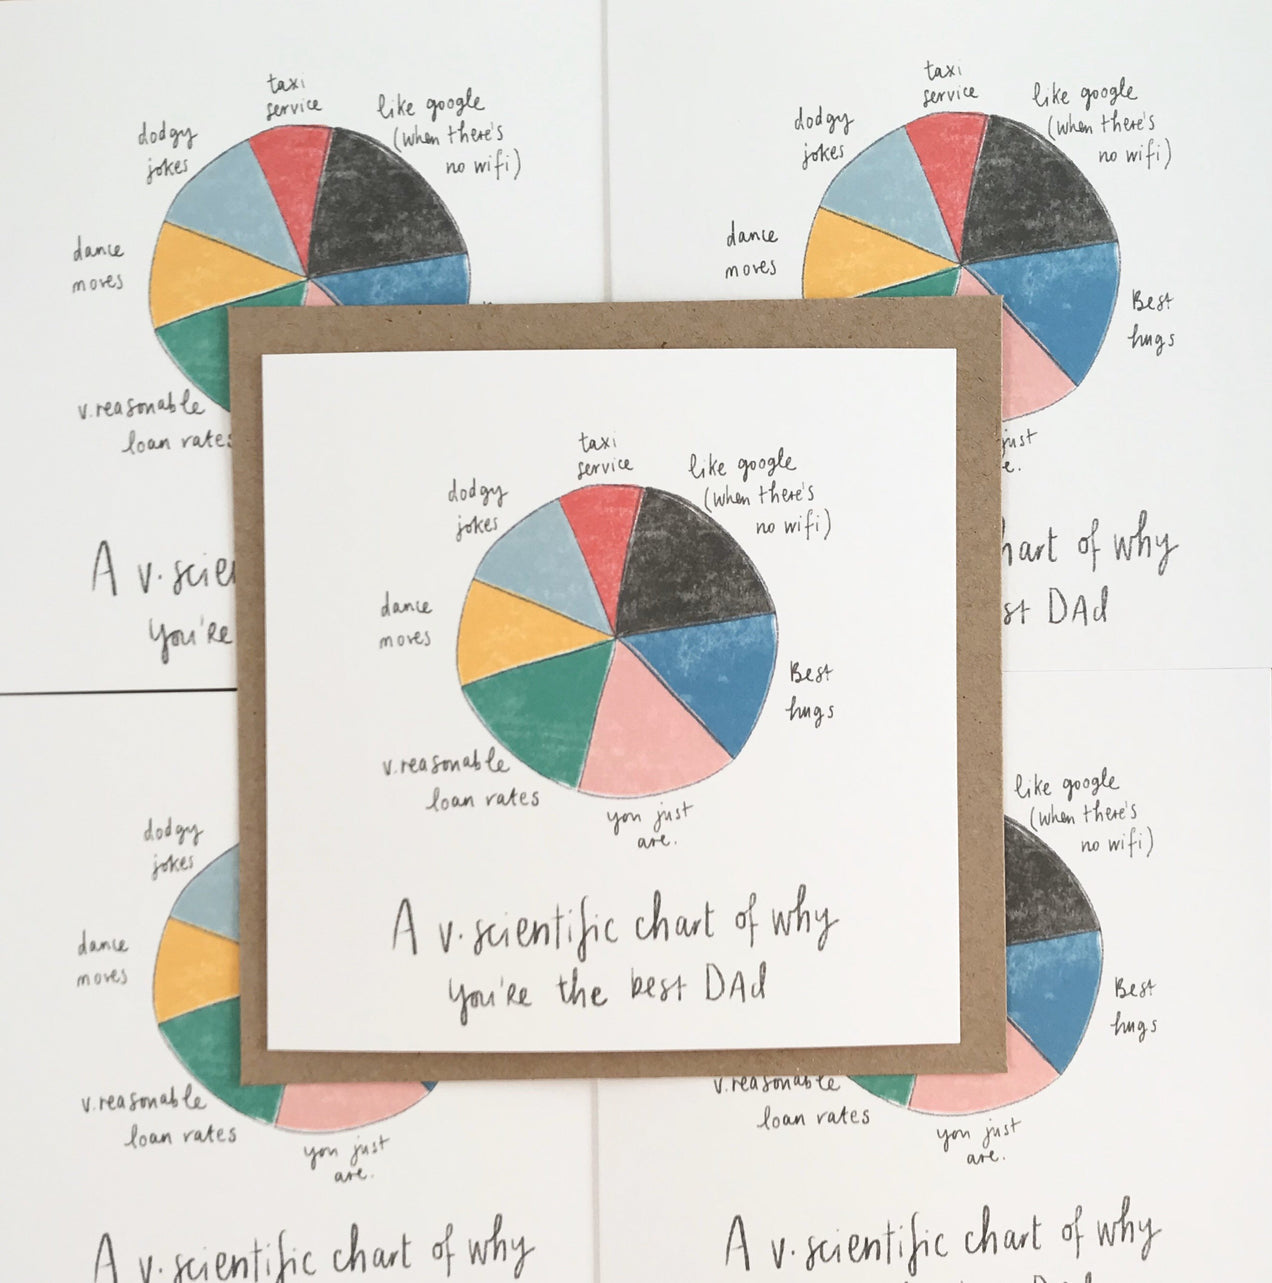 taxi
service
like google
(when there's
no wifi)
dodgy
jokes
dance
moves
v.reasonable
loan rates
A v.scien
you're
taxi
service
like google
(when there's
no wifi)
dodgy
jokes
dance
moves
Best
hugs
just
e.
hart of why
st DAd
taxi
service
like google
(when there's
no wifi)
dodgy
jokes
dance
moves
Best
hugs
v.reasonable
loan rates
you just
are.
A v.scientific chart of why
you're the best DAd
dodgy
jokes
dance
moves
v.reasonable
loan rates
you just
are.
A v.scientific chart of why
like google
(when there's
no wifi)
Best
hugs
v.reasonable
loan rates
you just
are.
A v.scientific chart of why